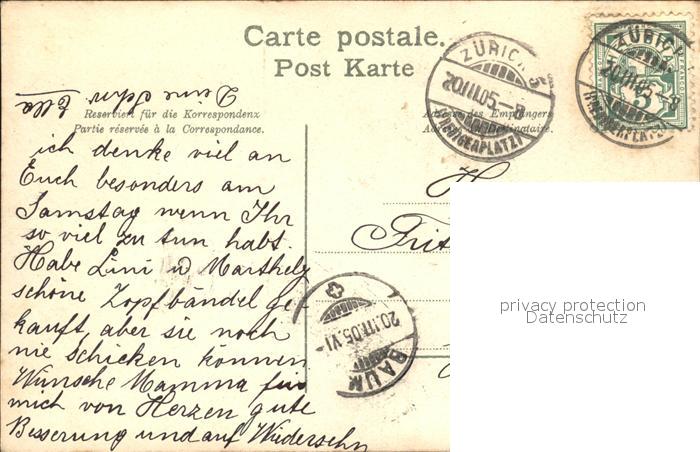 Carte postale.
Post Karte
Reserviert für die Korrespondenz
Partie réservée à la Correspondance.
Adresse des Empfängers
Adresse du Destinataire.
ZÜRICH
20.II.05.-8
ZÜRICH
20.II.05.-8
5
ich denke viel an
Euch besonders am
Samstag wenn Ihr
so viel zu tun habt.
Habe Lini u Marthely
schöne Zopfbändel ge
kauft, aber sie noch
nie schicken können
Wünsche Mamma für
mich von Herzen gute
Besserung und auf Wiedersehn
Deine Ella
H
Frit
BAUM
20.II.05.VI
privacy protection
Datenschutz